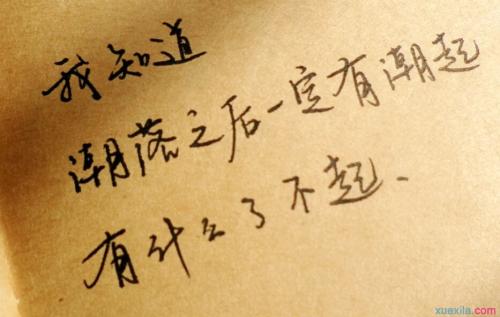 我知道
潮落之后一定有潮起
有什么了不起、
xuexila.com